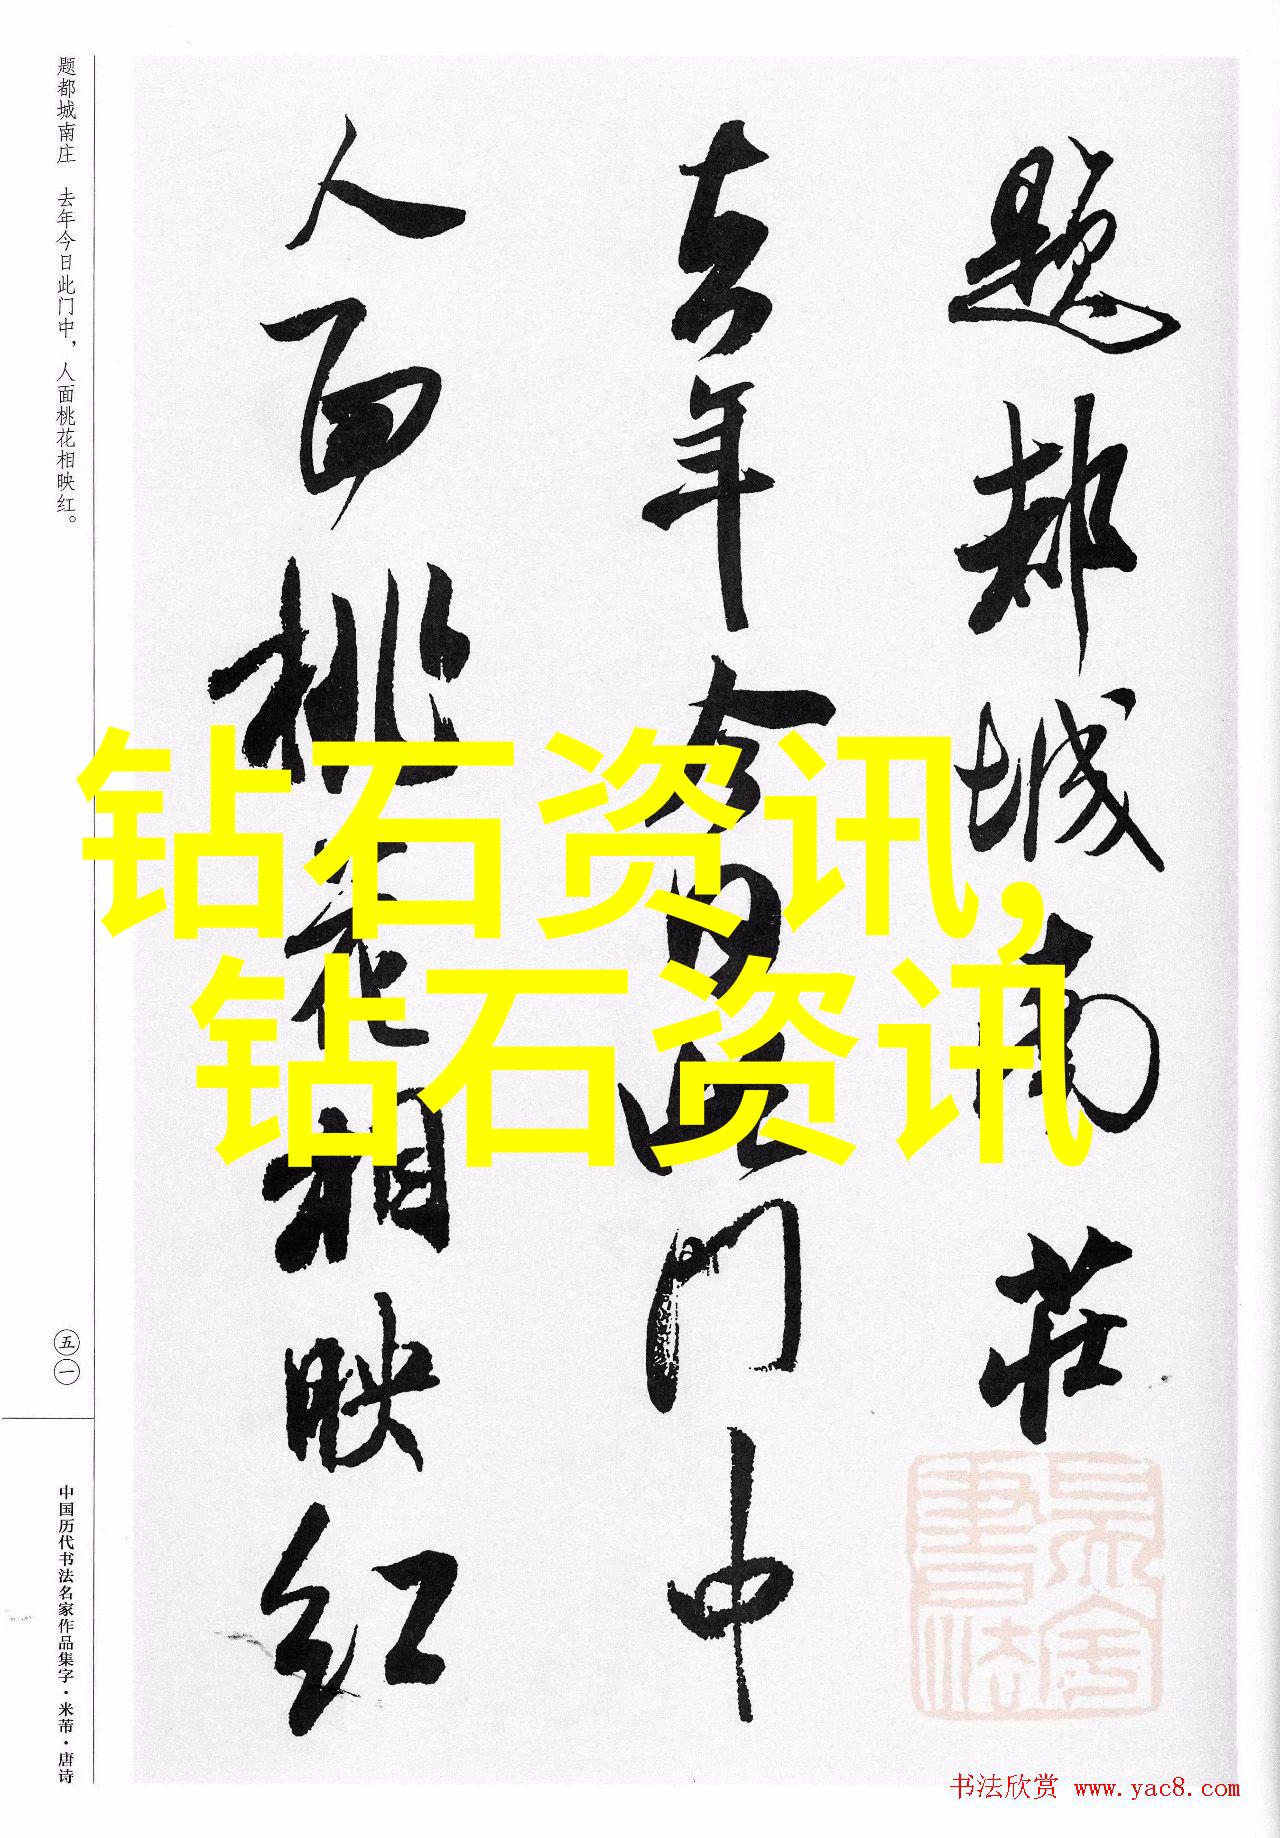 题都城南莊
去年今日此门中
人面桃花相映红
钻石资讯,
钻石资讯
题都城南庄 去年今日此门中，人面桃花相映红。
五一
中国历代书法名家作品集字·米芾·唐诗
书法欣赏 www.yac8.com